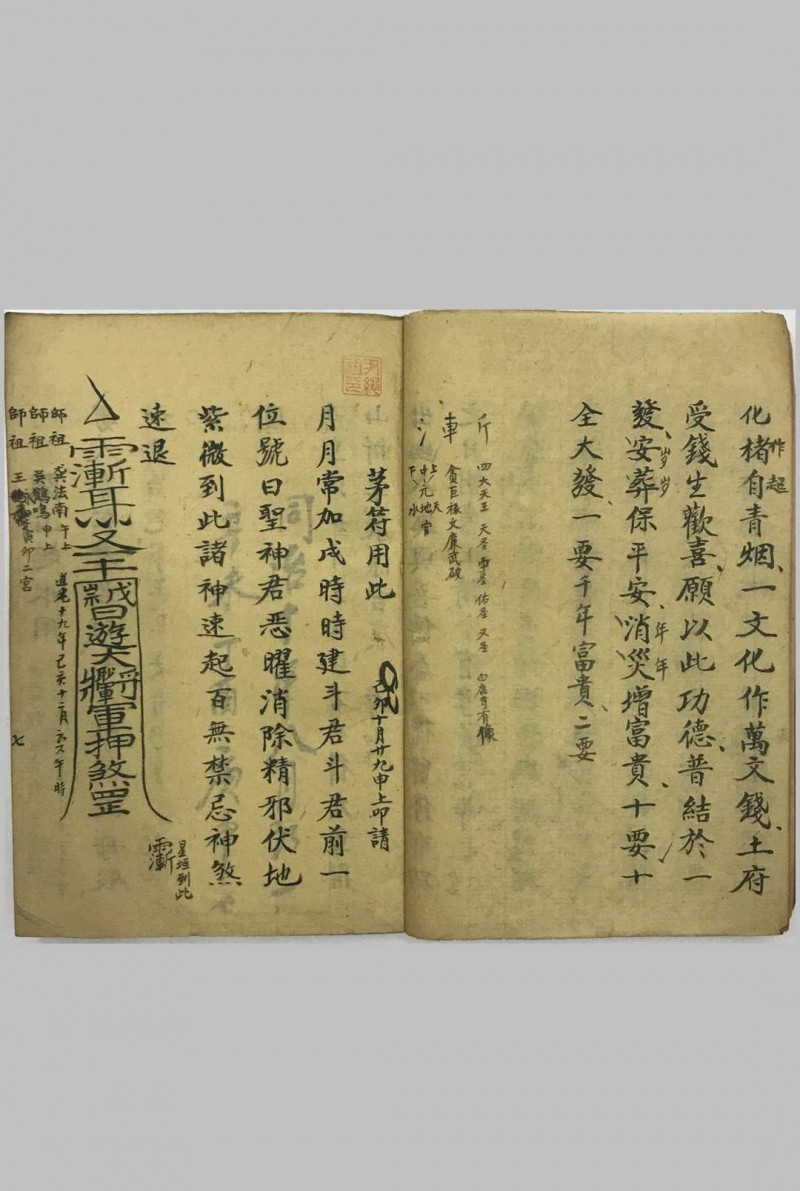 化楮自青烟一文化作萬文錢土府
作起
受錢生歡喜願以此功德普結於一
發安葬保平安消災增富貴十要十
岁岁
年年
全大發一要千年富貴二要
斤
四大天王
車
貪巨祿文廉武破
氵
上天
中元地官
下水
茅符用此
己卯十月廿九申上叩請
月月常加戌時時建斗君斗君前一
位號曰聖神君惡曜消除精邪伏地
紫微到此諸神速起百無禁忌神煞
速退
星垣到此
日遊大將軍押煞罡
師祖龔法南午上
師祖吳鶴鳴申上
師祖王寅卯二宮
道光十九年己亥十二月初六午時
七